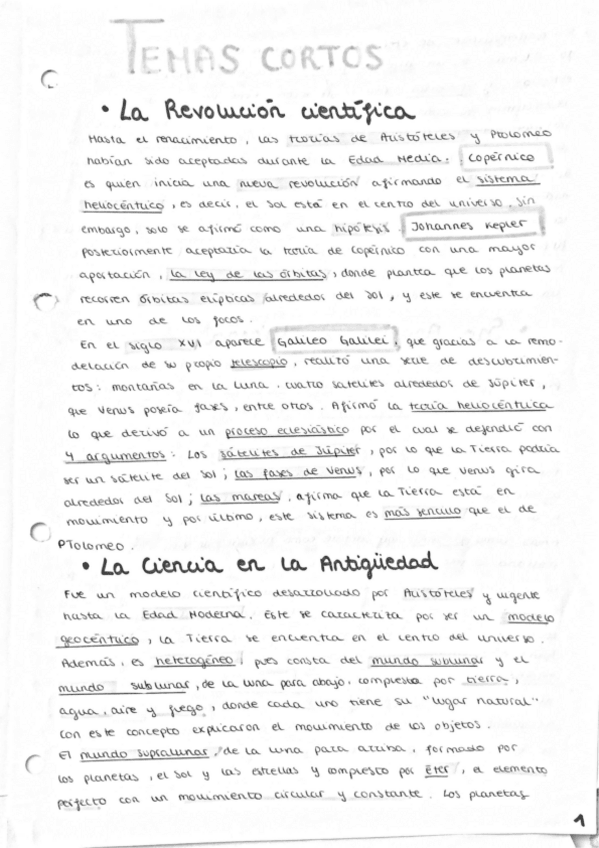 TEMAS CORTOS
• La Revolución científica
Hasta el renacimiento, las teorías de Aristóteles y Ptolomeo
habían sido aceptadas durante la Edad Media. Copérnico
es quien inicia una nueva revolución afirmando el sistema
heliocéntrico, es decir, el Sol está en el centro del universo. Sin
embargo, solo se afirmó como una hipótesis. Johannes Kepler
posteriormente aceptaría la teoría de Copérnico con una mayor
aportación, la ley de las órbitas, donde plantea que los planetas
recorren órbitas elípticas alrededor del Sol, y este se encuentra
en uno de los focos.
En el siglo XVI aparece Galileo Galilei, que gracias a la remo-
delación de su propio telescopio, realizó una serie de descubrimien-
tos: montañas en la Luna, cuatro satélites alrededor de Júpiter,
que Venus poseía fases, entre otros. Afirmó la teoría heliocéntrica
lo que derivó a un proceso eclesiástico por el cual se defendió con
4 argumentos: Los satélites de Júpiter, por lo que la Tierra podría
ser un satélite del Sol; las fases de Venus, por lo que Venus gira
alrededor del Sol; las mareas, afirma que la Tierra está en
movimiento y por último, este sistema es más sencillo que el de
PTolomeo.
• La Ciencia en la Antigüedad
Fue un modelo científico desarrollado por Aristóteles y vigente
hasta la Edad Moderna. Este se caracteriza por ser un modelo
geocéntrico, la Tierra se encuentra en el centro del universo.
Además, es heterogéneo, pues consta del mundo sublunar y el
mundo sublunar, de la luna para abajo, compuesta por tierra,
agua, aire y fuego, donde cada uno tiene su "lugar natural"
con este concepto explicaron el movimiento de los objetos.
El mundo supralunar, de la luna para arriba, formado por
los planetas, el Sol y las estrellas y compuesto por éter, el elemento
perfecto con un movimiento circular y constante. Los planetas
1